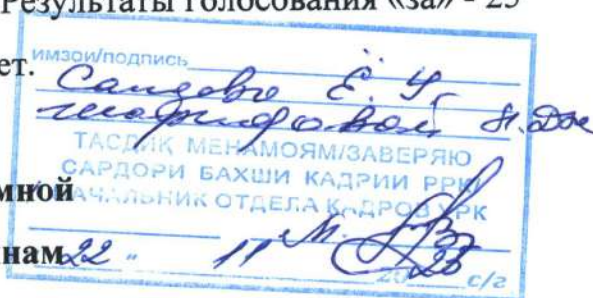 Результаты голосования «за» - 25
ет.
имзои/подпись
Саидова Ё. У.
Шафидовой Н. Дж
ТАСДИҚ МЕНАМОЯМ/ЗАВЕРЯЮ
САРДОРИ БАХШИ КАДРИИ РРКҲ
мной НАЧАЛЬНИК ОТДЕЛА КАДРОВ УРК
нам 22 " 11
20 25 с/г